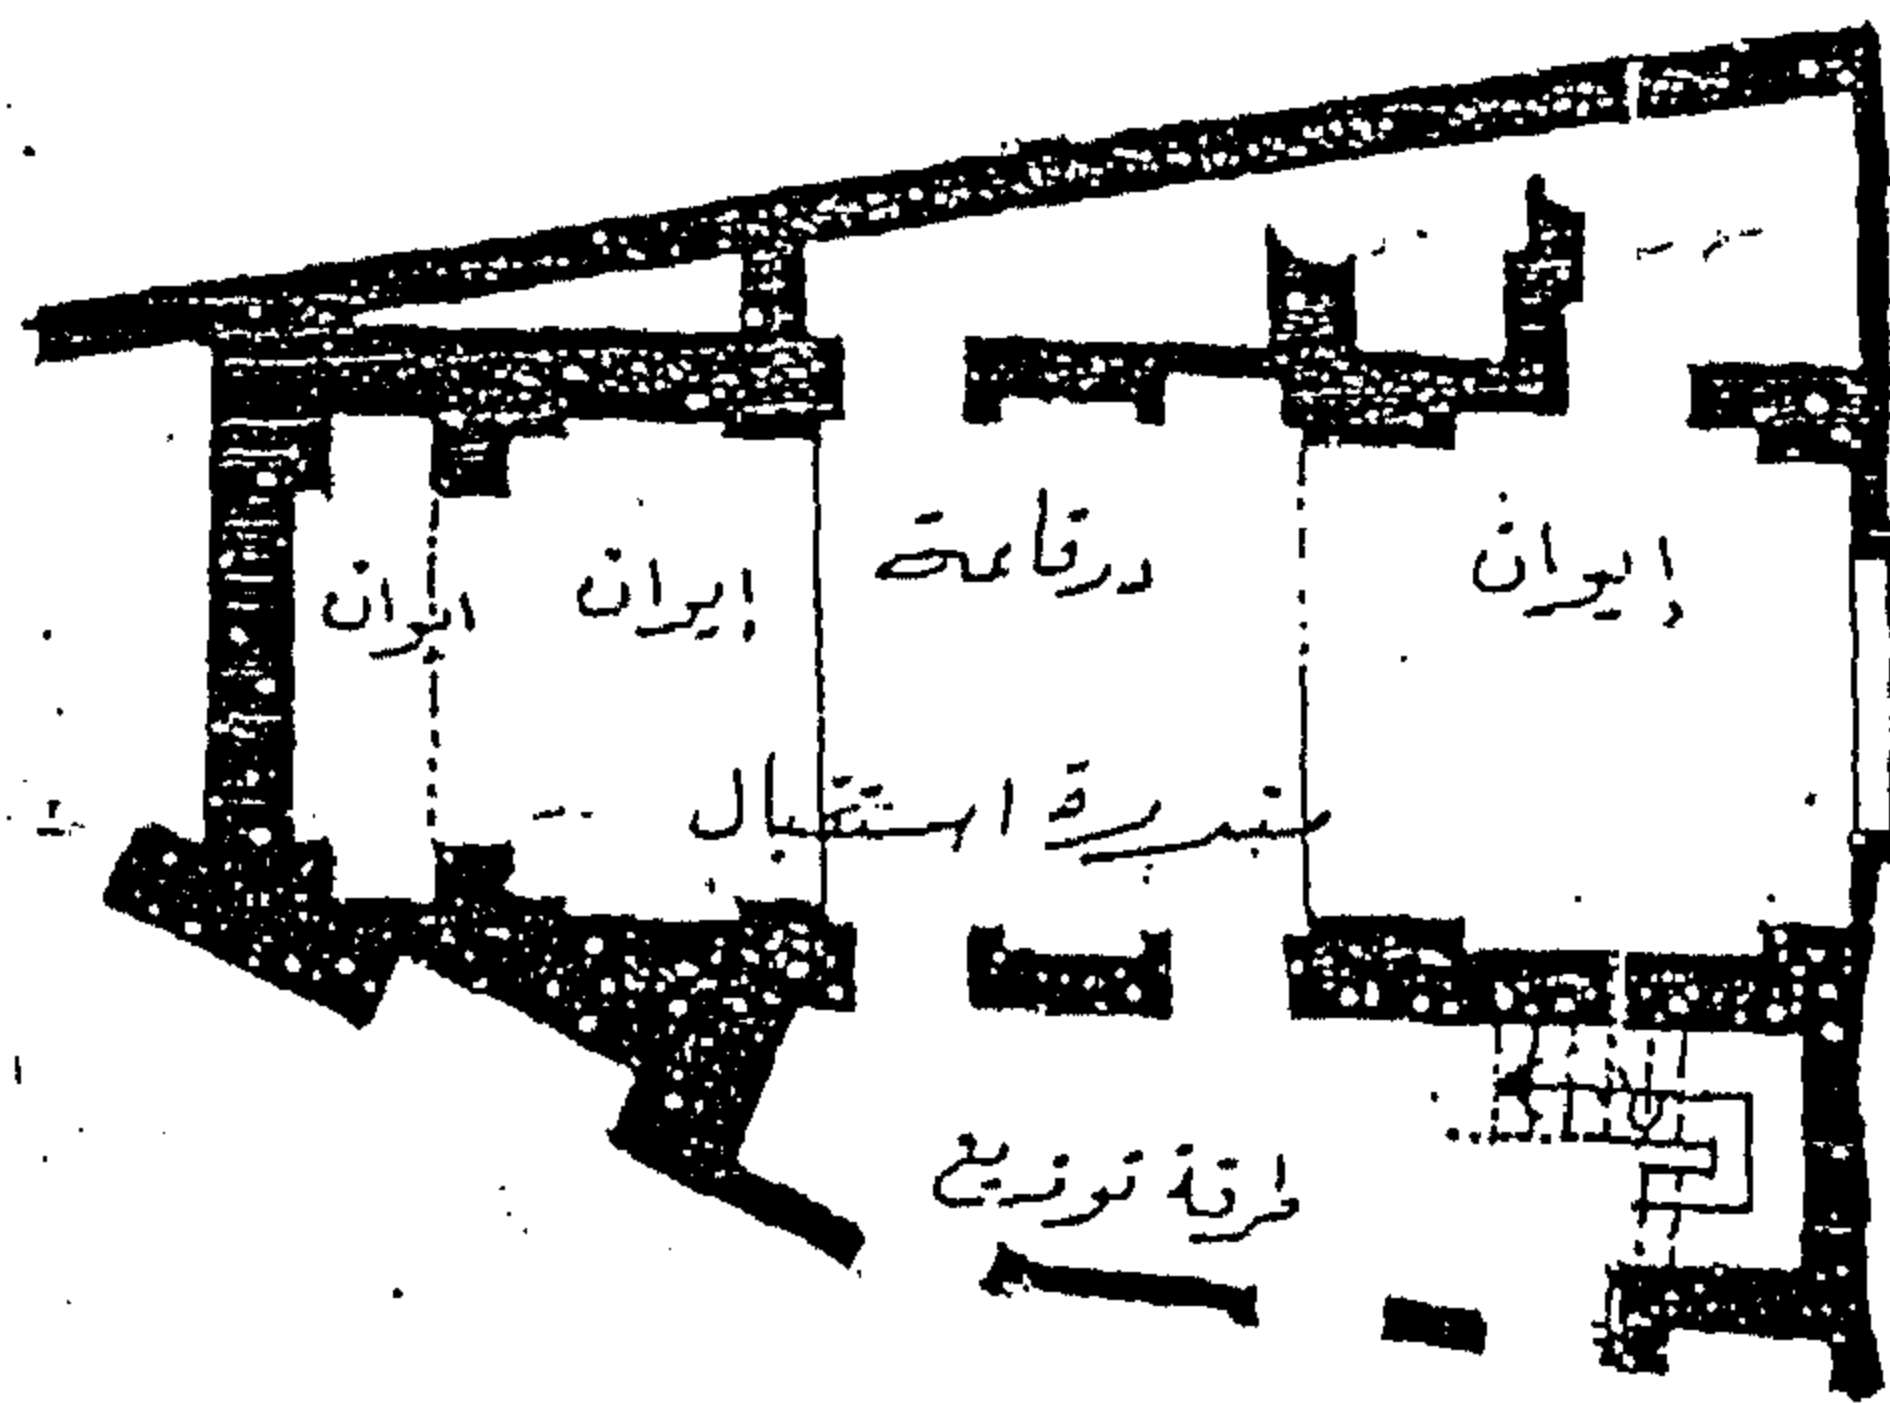 إيوان
درقاعة
إيوان
ايوان
استقبال
طرقة توزيع